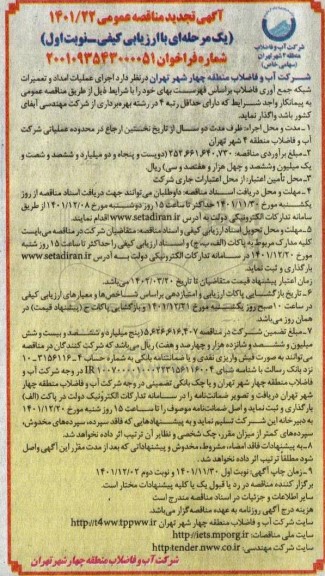 آگهی تجدید مناقصه عمومی ۱۴۰۱/۲۲
(یک مرحله‌ای با ارزیابی کیفی-نوبت اول)
شماره فراخوان ۲۰۰۱۰۹۳۵۴۳۰۰۰۰۵۱
شرکت آب و فاضلاب
منطقه ۴ شهر تهران
(سهامی خاص)
شرکت آب و فاضلاب منطقه چهار شهر تهران در نظر دارد اجرای عملیات امداد و تعمیرات
شبکه جمع آوری فاضلاب براساس فهرست بهای خود را با شرایط ذیل از طریق مناقصه عمومی
به پیمانکار واجد شرایط که دارای حداقل رتبه ۴ در رشته بهره‌برداری از شرکت مهندسی آبفای
کشور باشد واگذار نماید.
۱-مدت و محل اجراء: ظرف مدت دو سال از تاریخ نخستین ارجاع در محدوده عملیاتی شرکت
آب و فاضلاب منطقه ۴ شهر تهران
۲-مبلغ برآوردی مناقصه: ۲۵۲,۶۶۱,۶۴۰,۷۳۰ (دویست و پنجاه و دو میلیارد و ششصد و شصت و
یک میلیون وششصد و چهل هزار و هفتصد و سی) ریال.
۳-محل تأمین اعتبار: از محل اعتبارات جاری شرکت
۴-مهلت و محل دریافت اسناد مناقصه: داوطلبان می‌توانند جهت دریافت اسناد مناقصه از روز
یکشنبه مورخ ۱۴۰۱/۱۱/۳۰ حداکثر تا ساعت ۱۵ روز دوشنبه مورخ ۱۴۰۱/۱۲/۰۸ از طریق
سامانه تدارکات الکترونیکی دولت به آدرس www.setadiran.ir اقدام نمایند.
۵-مهلت و محل تحویل اسناد ارزیابی کیفی و اسناد مناقصه: متقاضیان شرکت در مناقصه می‌بایست
کلیه مدارک مربوط به پاکات (الف،ب،ج) و اسناد ارزیابی کیفی را حداکثر تا ساعت ۱۵ روز شنبه
مورخ ۱۴۰۱/۱۲/۲۰ در سامانه تدارکات الکترونیکی دولت به آدرس www.setadiran.ir
بارگذاری و ثبت نمایند.
زمان اعتبار پیشنهاد قیمت متقاضیان تا تاریخ ۱۴۰۲/۰۳/۲۰ می‌باشد.
۶-تاریخ بازگشایی پاکات ارزیابی و امتیازدهی براساس شاخص‌ها و معیارهای ارزیابی کیفی
در ساعت ۱۰ صبح روز یکشنبه مورخ ۱۴۰۱/۱۲/۲۱ و بازگشایی پاکات ج (پیشنهاد قیمت) در
همان روز می‌باشد.
۷-مبلغ تضمین شرکت در مناقصه ۵,۶۲۶,۶۱۶,۴۰۷ (پنج میلیارد و ششصد و بیست و شش
میلیون و ششصد و شانزده هزار و چهارصد و هفت) ریال می‌باشد که شرکت کنندگان در مناقصه
می‌توانند به صورت فیش واریزی نقدی و یا ضمانتنامه بانکی به شماره حساب
نزد بانک رسالت با شناسه شبای در وجه شرکت آب و
فاضلاب منطقه چهار شهر تهران و یا چک بانکی تضمینی در وجه شرکت آب و فاضلاب منطقه چهار
شهر تهران دریافت و تصویر ضمانت‌نامه را در سامانه تدارکات الکترونیک دولت در پاکت (الف)
بارگذاری و ثبت نماید و اصل ضمانت‌نامه موصوف را تا ساعت ۱۵ روز شنبه مورخ ۱۴۰۱/۱۲/۲۰
به دبیرخانه این شرکت تسلیم نماید و به پیشنهادهایی که فاقد سپرده، سپرده‌های مخدوش،
سپرده‌های کمتر از میزان مقرر، چک شخصی و نظایر آن ترتیب اثر داده نخواهد شد.
۸-به پیشنهادات فاقد امضاء، مشروط، مخدوش و پیشنهاداتی که بعد از مدت مقرر این آگهی واصل
شود مطلقاً ترتیب اثر داده نخواهد شد.
۹-زمان چاپ آگهی: نوبت اول ۱۴۰۱/۱۱/۳۰ و نوبت دوم ۱۴۰۱/۱۲/۰۲
برگزار کننده مناقصه در رد یا قبول یک یا کلیه پیشنهادات مختار است.
سایر اطلاعات و جزئیات در اسناد مناقصه مندرج است
هزینه درج آگهی روزنامه به عهده مناقصه‌گزار می‌باشد.
سایت شرکت آب و فاضلاب منطقه چهار شهر تهران http://t4ww.tppww.ir
سایت ملی مناقصات: http://iets.mporg.ir
سایت شرکت مهندسی: http:tender.nww.co.ir
شرکت آب و فاضلاب منطقه چهار شهر تهران